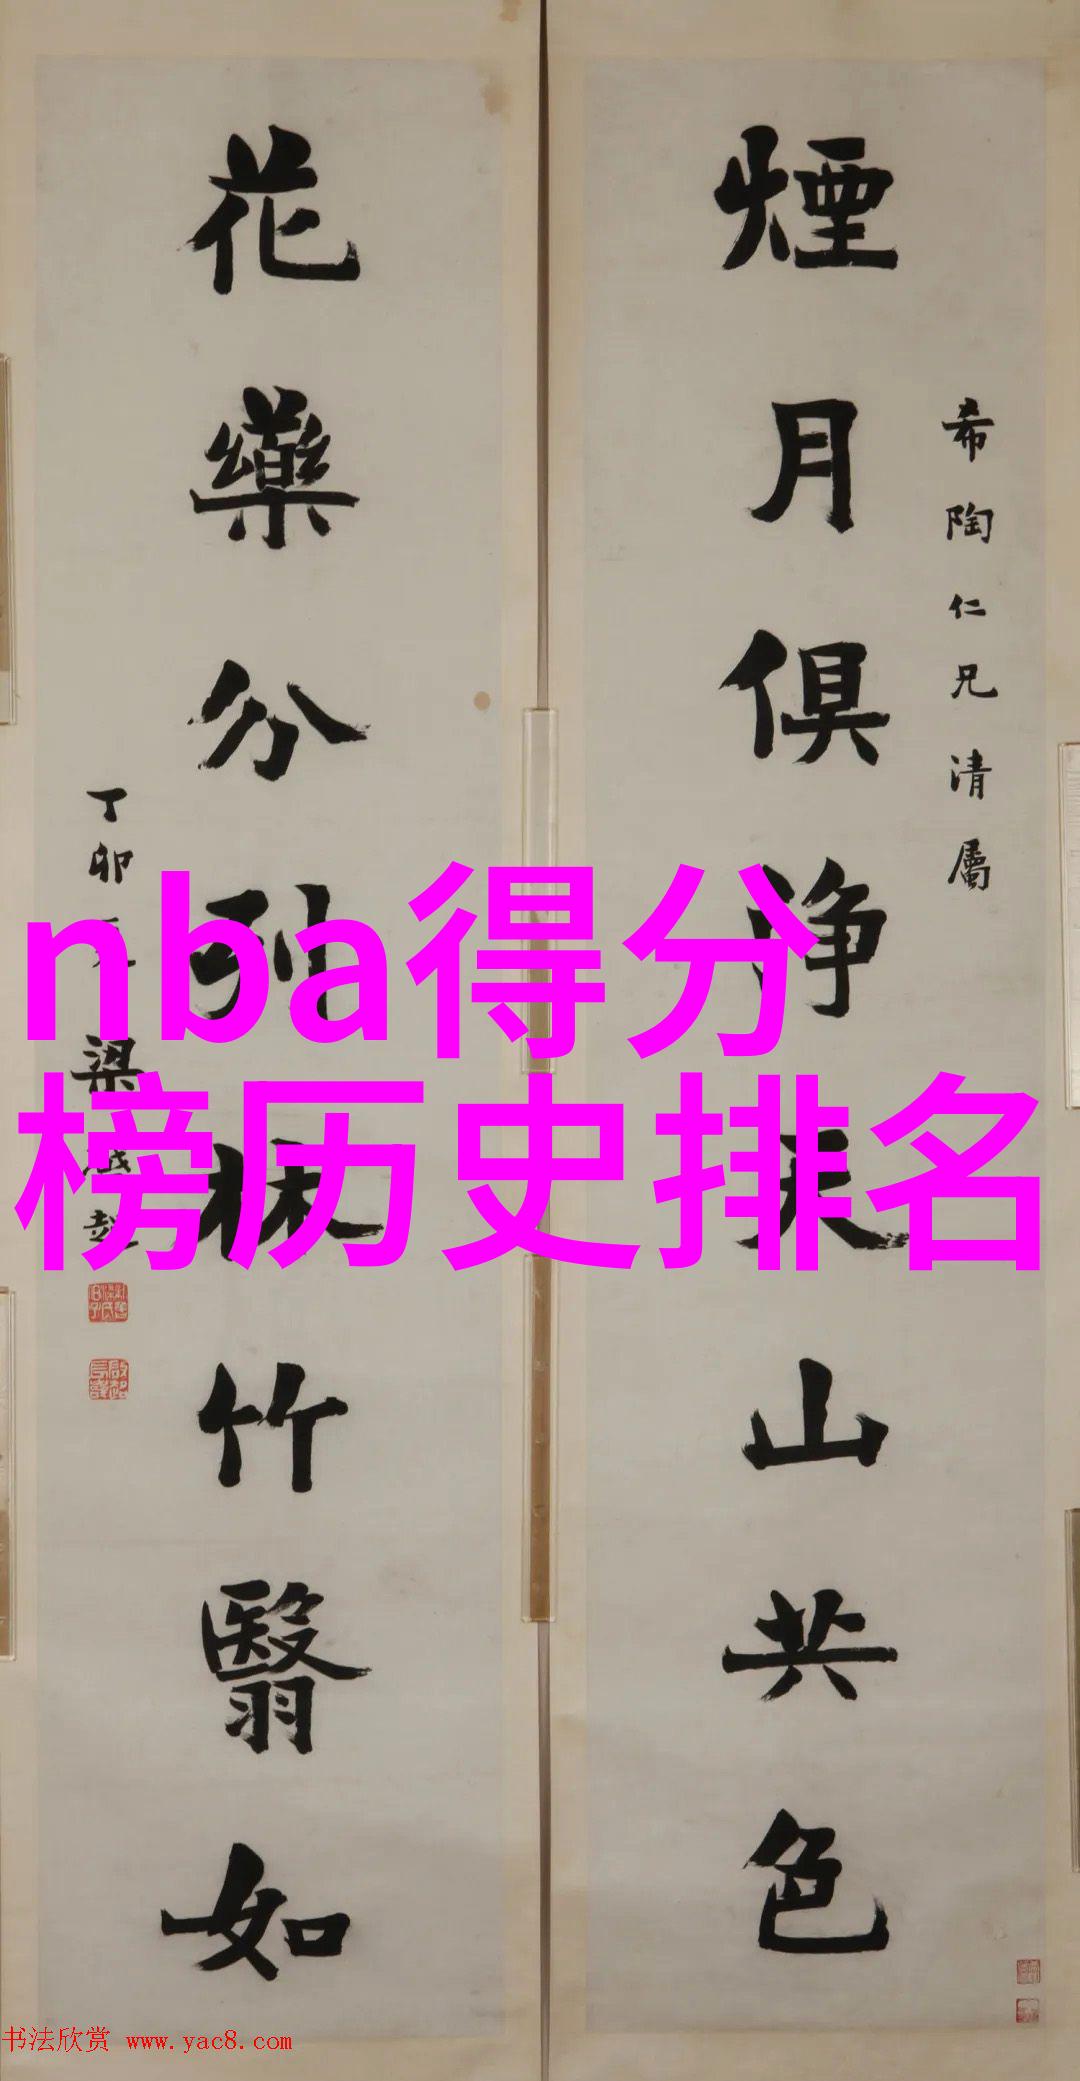 煙月俱淨天山共色
希陶仁兄清屬
花藥分列林竹翳如
丁卯
梁啟超
nba得分
榜历史排名
书法欣赏 www.yac8.com